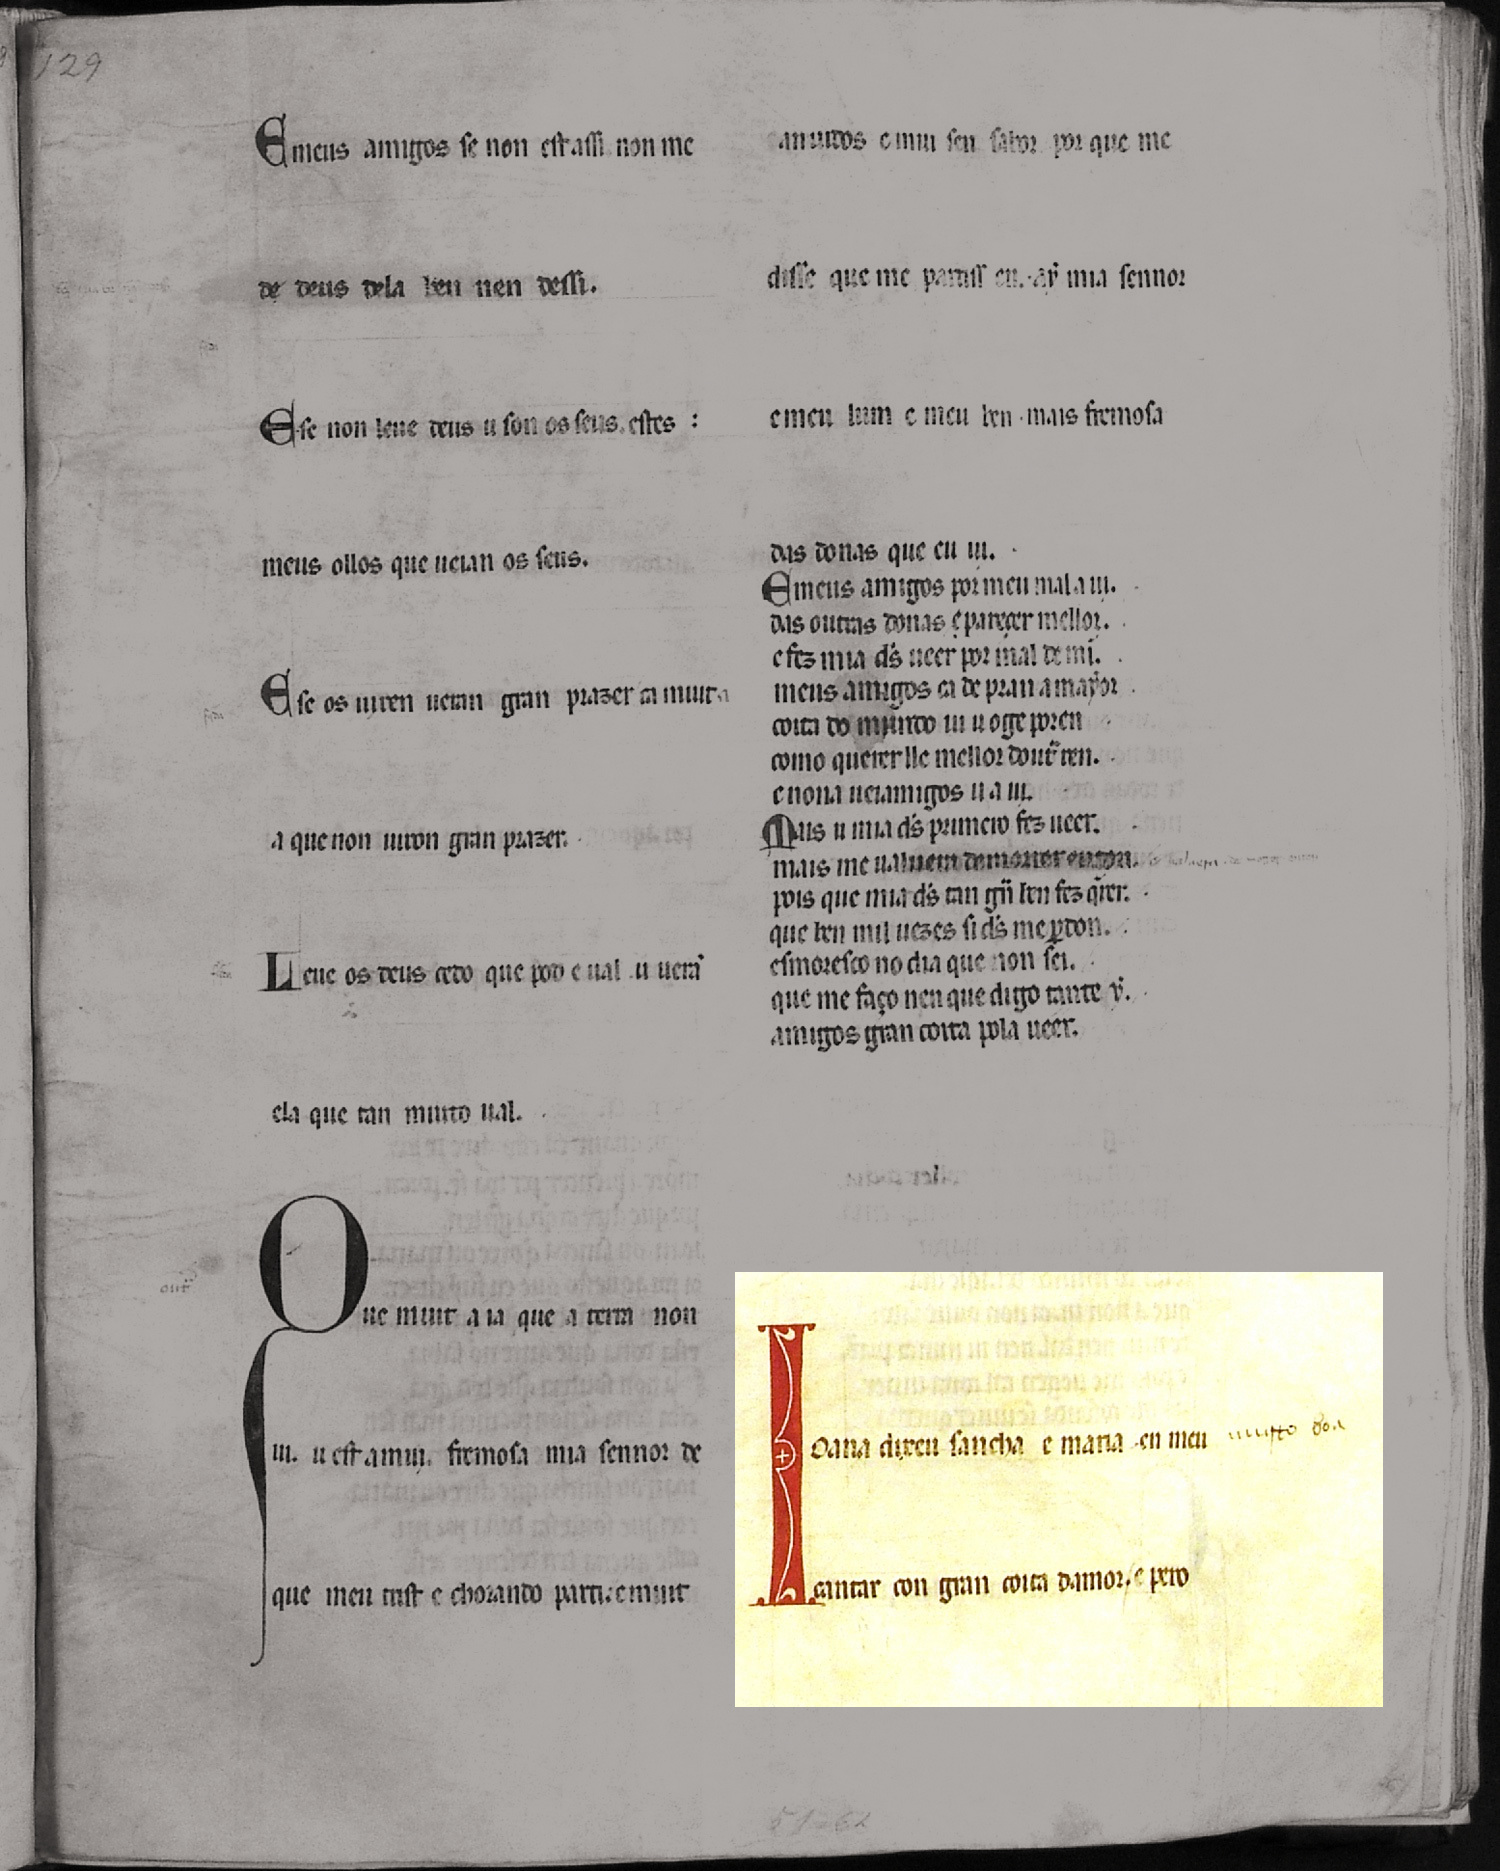 129
E meus amigos se non est assi non me
de deus dela ben nen dessi.
E se non leue deus u son os seus. estes :
meus ollos que ueian os seus.
E se os uiren ueran gran prazer ca muita
a que non uiron gran prazer.
Leue os deus cedo que pod e ual u uerã
ela que tan muito ual.
Que muit a ia que a terra non
ui. u est a mui fremosa mia sennor de
que meu trist e chorando parti. e muit
amiudos e miu seu sabor por que me
disse que me partiss en. aẏ mia sennor
e meu lum e meu ben. mais fremosa
das donas que eu ui.
E meus amigos por meu mal a ui.
das outras donas e pareçer mellor.
e fez mia d̃s ueer por mal de mĩ.
meus amigos ca de pran a maẏor
coita do mundo ui u oge poren
como querer lle mellor doutr̃ ren.
e nona uei amigos u a ui.
Mais u mia d̃s primeiro fez ueer.
mais me ualuera de morrer enton.
pois que mia d̃s tan grã ben fez q̃rer.
que ben mil uezes si d̃s me ꝑdon.
esmoresco no dia que non sei.
que me faço nen que digo tante ẏ.
amigos gran coita pola ueer.
Ioana dixeu sancha e maria en meu muito bon
cantar con gran coita damor. e pero